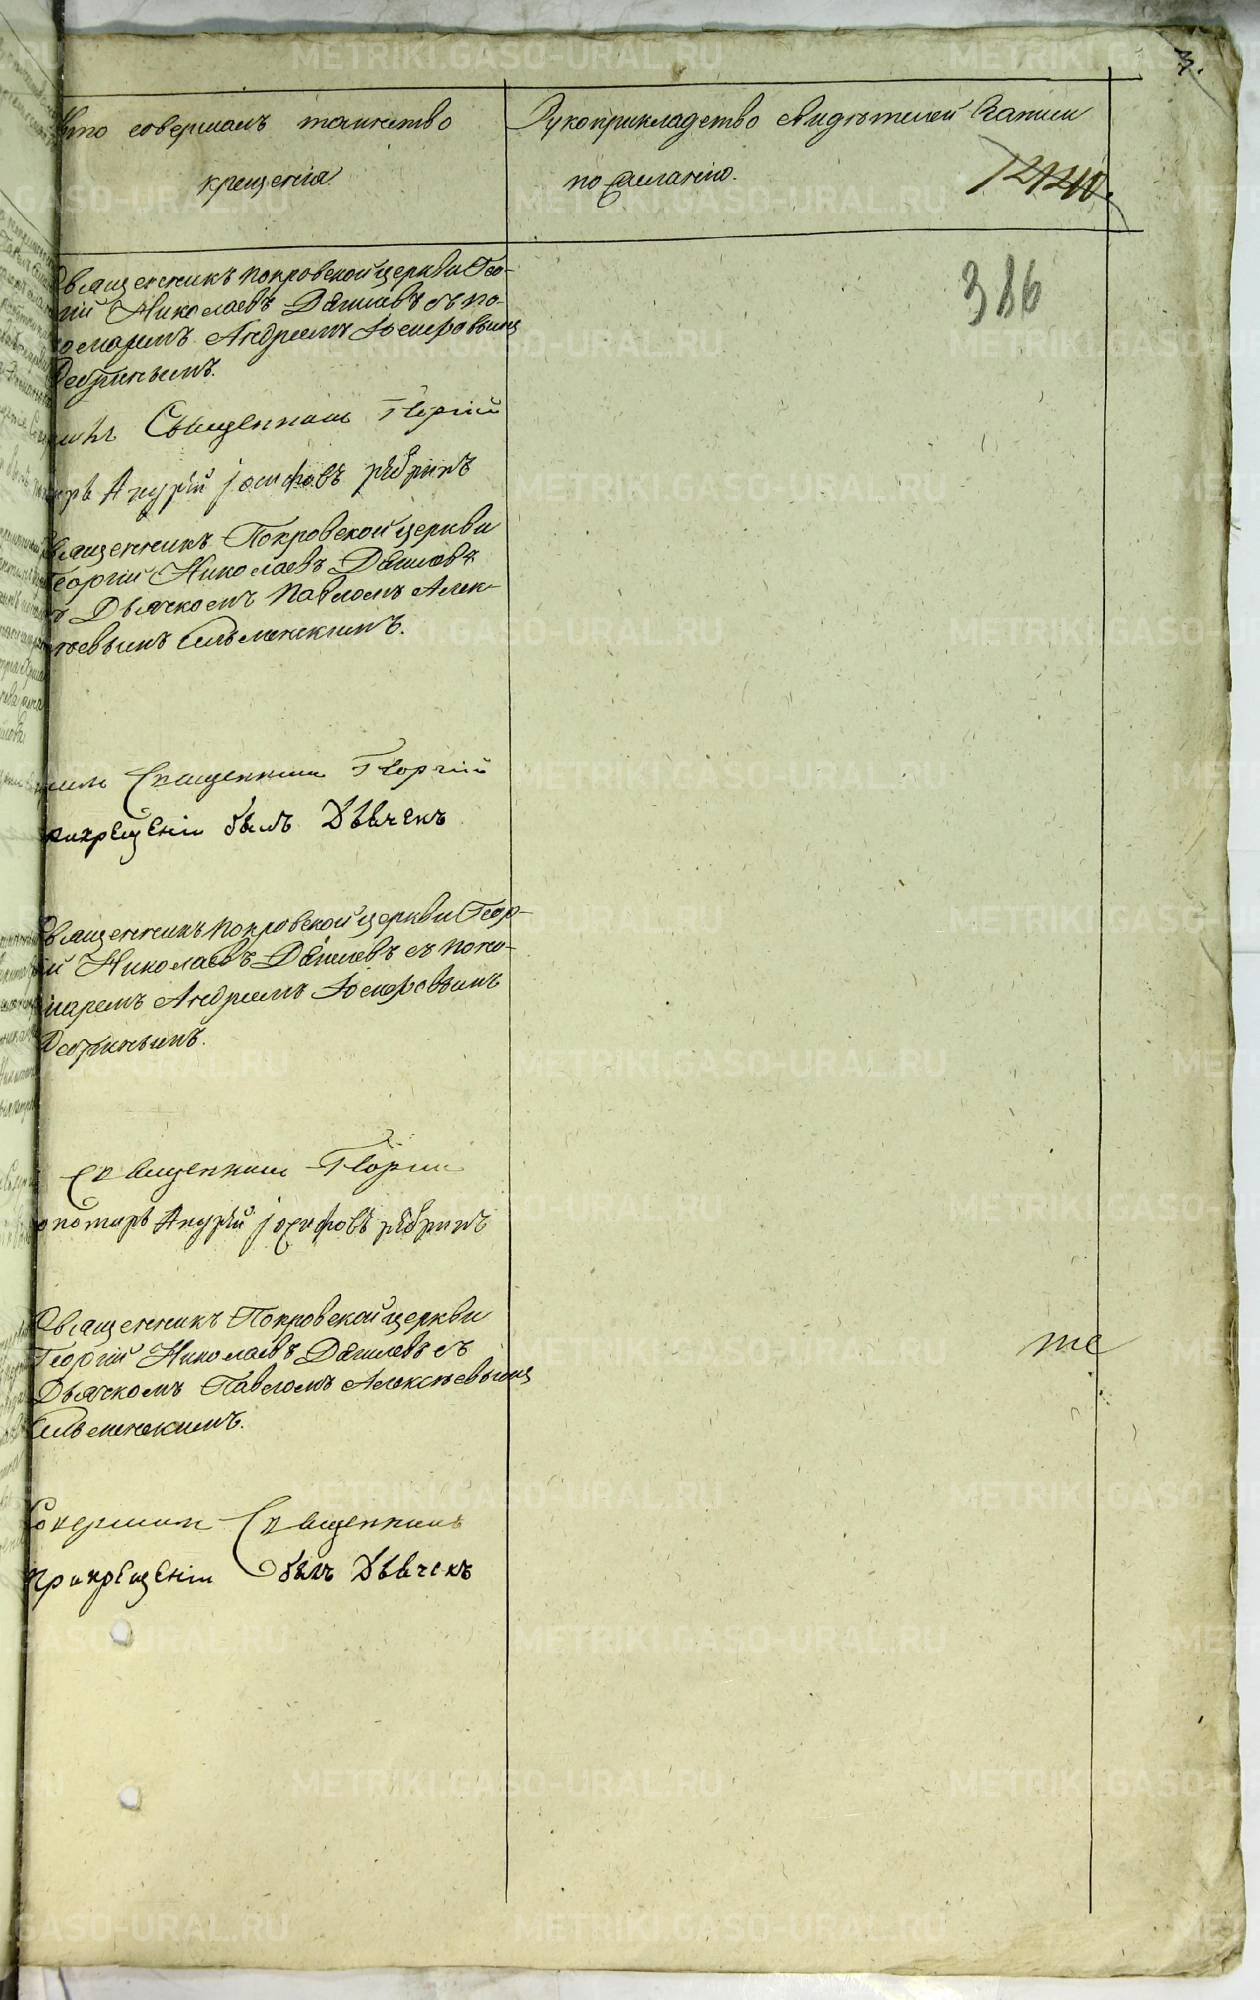 3.
Кто совершалъ таинство
крещенія
Рукоприкладство свидѣтелей записи
по желанію.
386
Священникъ Покровской церкви Геор-
гій Николаевъ с по-
номаремъ Андреемъ Іосифовымъ
Ребринымъ.
Священникъ Георгій
Андрей Іосифовъ Ребринъ
Священникъ Покровской церкви
Георгій Николаевъ
Дьячкомъ Павломъ Алек-
сѣевымъ Сильменскимъ.
Священникъ Георгій
при крещеніи былъ Дьячекъ
Священникъ Покровской церкви Геор-
гій Николаевъ съ поно-
маремъ Андреемъ Іосифовымъ
Ребринымъ.
Священникъ Георгій
пономарь Андрей Іосифовъ Ребринъ
Священникъ Покровской церкви
Георгій Николаевъ съ
Дьячкомъ Павломъ Алексѣевымъ
Сильменскимъ.
Совершилъ Священникъ
при крещеніи былъ Дьячекъ
те
METRIKI.GASO-URAL.RU